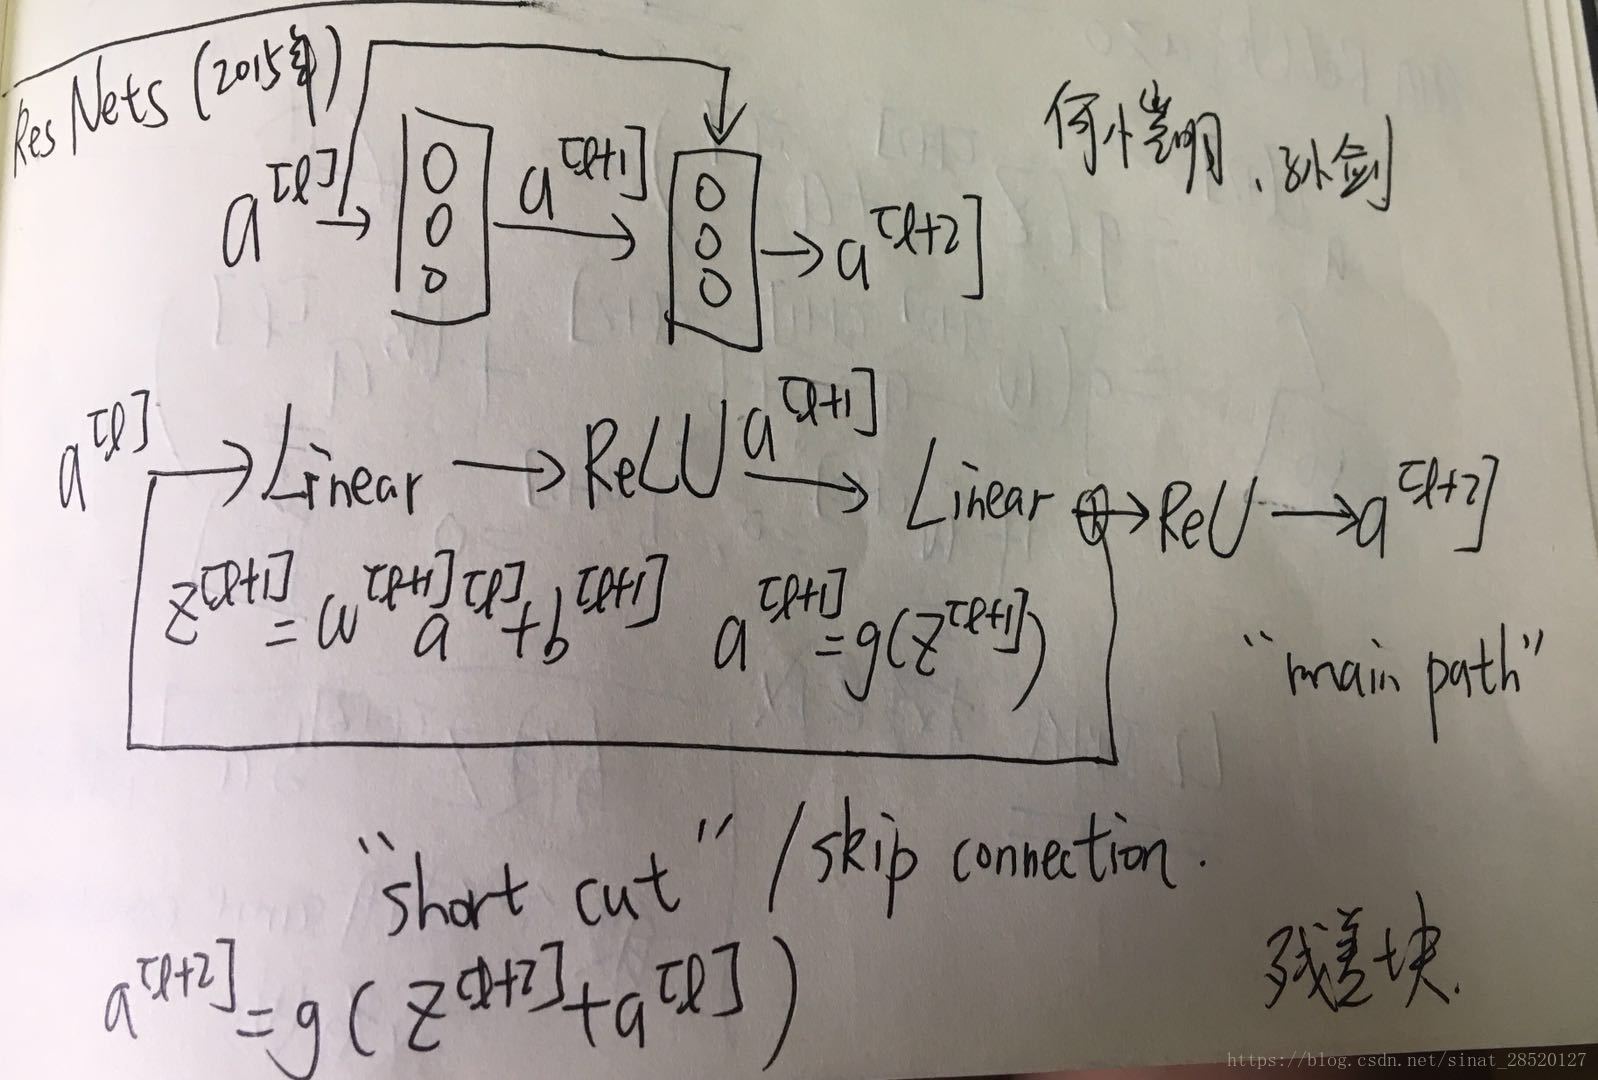 ResNets (2015年)
何恺明、孙剑
a^[l] → a^[l+1] → a^[l+2]
a^[l] → Linear → ReLU a^[l+1] → Linear ⊕→ ReLU → a^[l+2]
z^[l+1] = w^[l+1] a^[l] + b^[l+1] a^[l+1] = g(z^[l+1])
"main path"
"short cut" / skip connection.
a^[l+2] = g(z^[l+2] + a^[l])
残差块.
https://blog.csdn.net/sinat_28520127